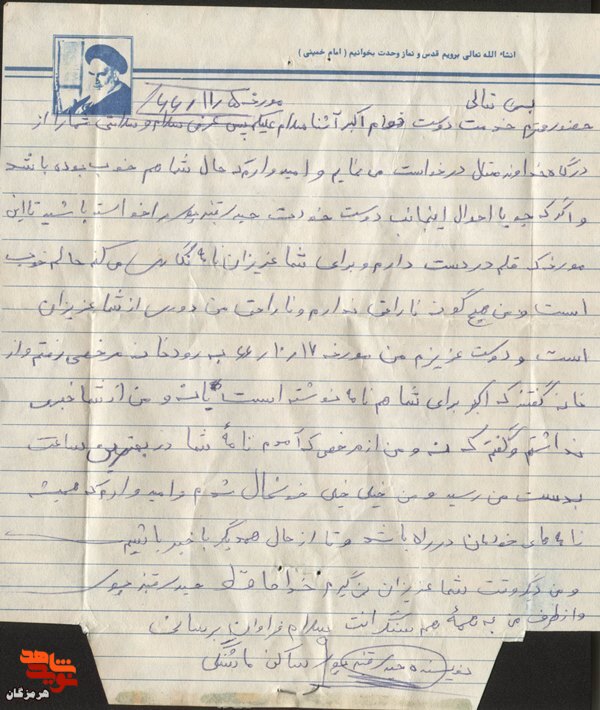 انشاء الله تعالی برویم قدس و نماز وحدت بخوانیم ( امام خمینی )
تعالی مورخه
حضور محترم خدمت دوست اکبر آشنا سلام علیکم پس از عرض سلام و سلامتی شما را از
درگاه خداوند متعال درخواست می نمایم و امیدوارم که حال شما هم خوب بوده باشد
و اگر که جویا احوال اینجانب دوست خودت حیدر قنبرپور را خواسته باشید تا این
مورخه که قلم در دست دارم و برای شما عزیزان نامه نگاری می کنم حالم خوب
است و من هیچ گونه ناراحتی ندارم و ناراحتی من دوری از شما عزیزان
است و دوست عزیزم من مورخه ۱۷ ر ۱۰ ر ۶۶ به رودخانه مرخصی رفتم و از
خانه گفتند که اکبر برای شما هم نامه نوشته است یا نه و من از شما خبری
نداشتم و گفتم که نه و من از مرخصی که آمدم نامهٔ شما در بهترین ساعت
بدست من رسید و من خیلی خیلی خوشحال شدم و امیدوارم که همیشه
نامه های خودمان در راه باشد و تا از حال همدیگر باخبر باشیم
و من دیگر وقت شما عزیزان نمی گیرم خداحافظ حیدر قنبرپور
و از طرف من به همهٔ هم سنگرانت سلام فراوان برسانی
نویسنده حیدر قنبرپور ساکن
شاهد
نوید
هرمزگان